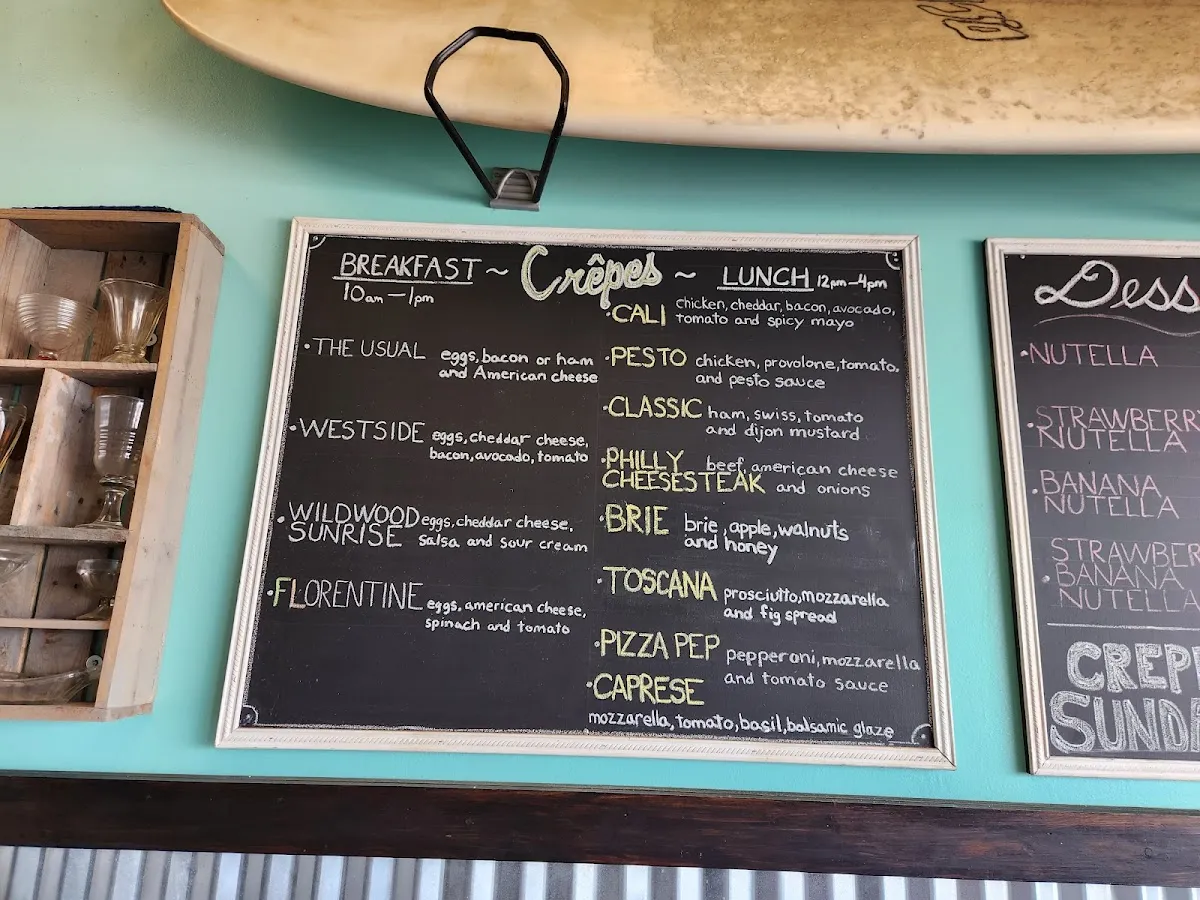 Crêpes
BREAKFAST ~
10am - 1pm
·THE USUAL eggs, bacon or ham
and American cheese
·WESTSIDE eggs, cheddar cheese,
bacon, avocado, tomato
·WILDWOOD eggs, cheddar cheese,
SUNRISE salsa and sour cream
·FLORENTINE eggs, american cheese,
spinach and tomato
~ LUNCH 12pm-4pm
·CALI chicken, cheddar, bacon, avocado,
tomato and spicy mayo
·PESTO chicken, provolone, tomato,
and pesto sauce
·CLASSIC ham, swiss, tomato
and dijon mustard
·PHILLY beef, american cheese
CHEESESTEAK and onions
·BRIE brie, apple, walnuts
and honey
·TOSCANA prosciutto, mozzarella
and fig spread
·PIZZA PEP pepperoni, mozzarella
and tomato sauce
·CAPRESE
mozzarella, tomato, basil, balsamic glaze
Dess
·NUTELLA
·STRAWBERR
NUTELLA
·BANANA
NUTELLA
·STRAWBER
BANANA
NUTELLA
CREP
SUND